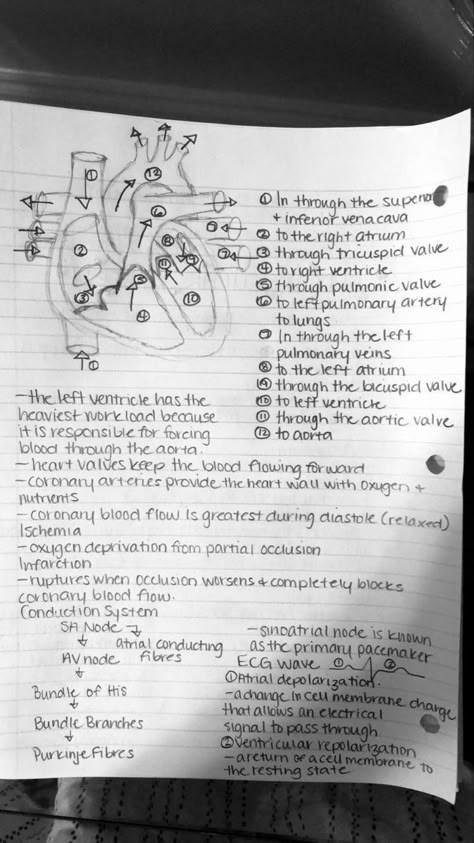 ① In through the superior
+ inferior vena cava
② to the right atrium
③ through tricuspid valve
④ to right ventricle
⑤ through pulmonic valve
⑥ to left pulmonary artery
to lungs
⑦ In through the left
pulmonary veins
⑧ to the left atrium
⑨ through the bicuspid valve
⑩ to left ventricle
⑪ through the aortic valve
⑫ to aorta
①
⑫
⑥
⑦
②
⑧
⑦
⑤
⑪
⑨
③
④
⑩
①
- the left ventricle has the
heaviest workload because
it is responsible for forcing
blood through the aorta.
- heart valves keep the blood flowing forward
- coronary arteries provide the heart wall with oxygen +
nutrients
- coronary blood flow is greatest during diastole (relaxed)
Ischemia
- oxygen deprivation from partial occlusion
Infarction
- ruptures when occlusion worsens + completely blocks
coronary blood flow.
Conduction System
SA Node
atrial conducting
fibres
AV node
Bundle of His
Bundle Branches
Purkinje Fibres
- sinoatrial node is known
as the primary pacemaker
ECG wave ① ②
① Atrial depolarization.
- a change in cell membrane charge
that allows an electrical
signal to pass through
② ventricular repolarization
- a return of a cell membrane to
the resting state